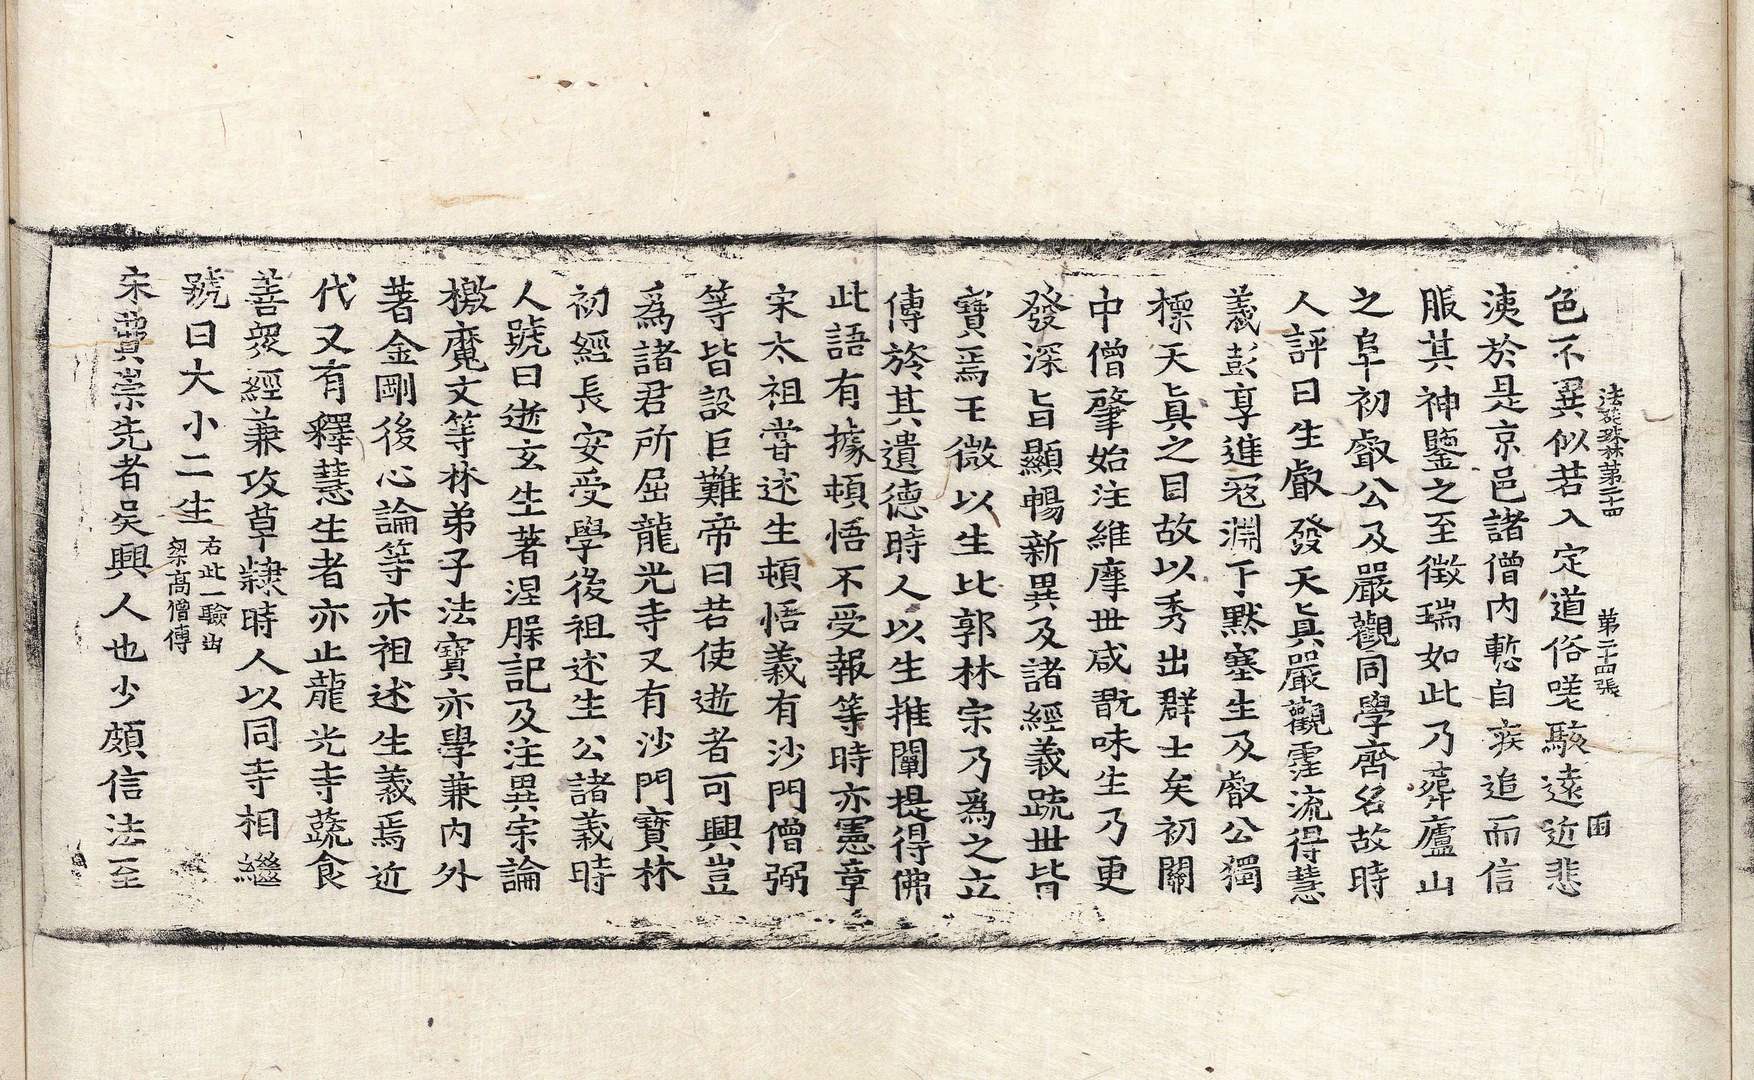 法苑珠林第二十四　第二十四張　困
色不異似若入定道俗嗟駭遠近悲
洟於是京邑諸僧內慙自疾追而信
服其神鑒之至徵瑞如此乃葬廬山
之阜初叡公及嚴觀同學齊名故時
人評曰生叡發天眞嚴觀窪流得慧
義彭享進寇淵于默塞生及叡公獨
標天眞之目故以秀出群士矣初關
中僧肇始注維摩世咸翫味生乃更
發深旨顯暢新異及諸經義䟽世皆
寶焉王微以生比郭林宗乃爲之立
傳旍其遺德時人以生推闡提得佛
此語有據頓悟不受報等時亦憲章
宋太祖嘗述生頓悟義有沙門僧弼
等皆設巨難帝曰若使逝者可興豈
爲諸君所屈龍光寺又有沙門寶林
初經長安受學後祖述生公諸義時
人號曰逝玄生著涅槃記及注異宗論
檄魔文等林弟子法寶亦學兼內外
著金剛後心論等亦祖述生義焉近
代又有釋慧生者亦止龍光寺蔬食
善衆經兼攻草隸時人以同寺相繼
號曰大小二生右此一驗出
梁高僧傳
宋費崇先者吳興人也少頗信法至